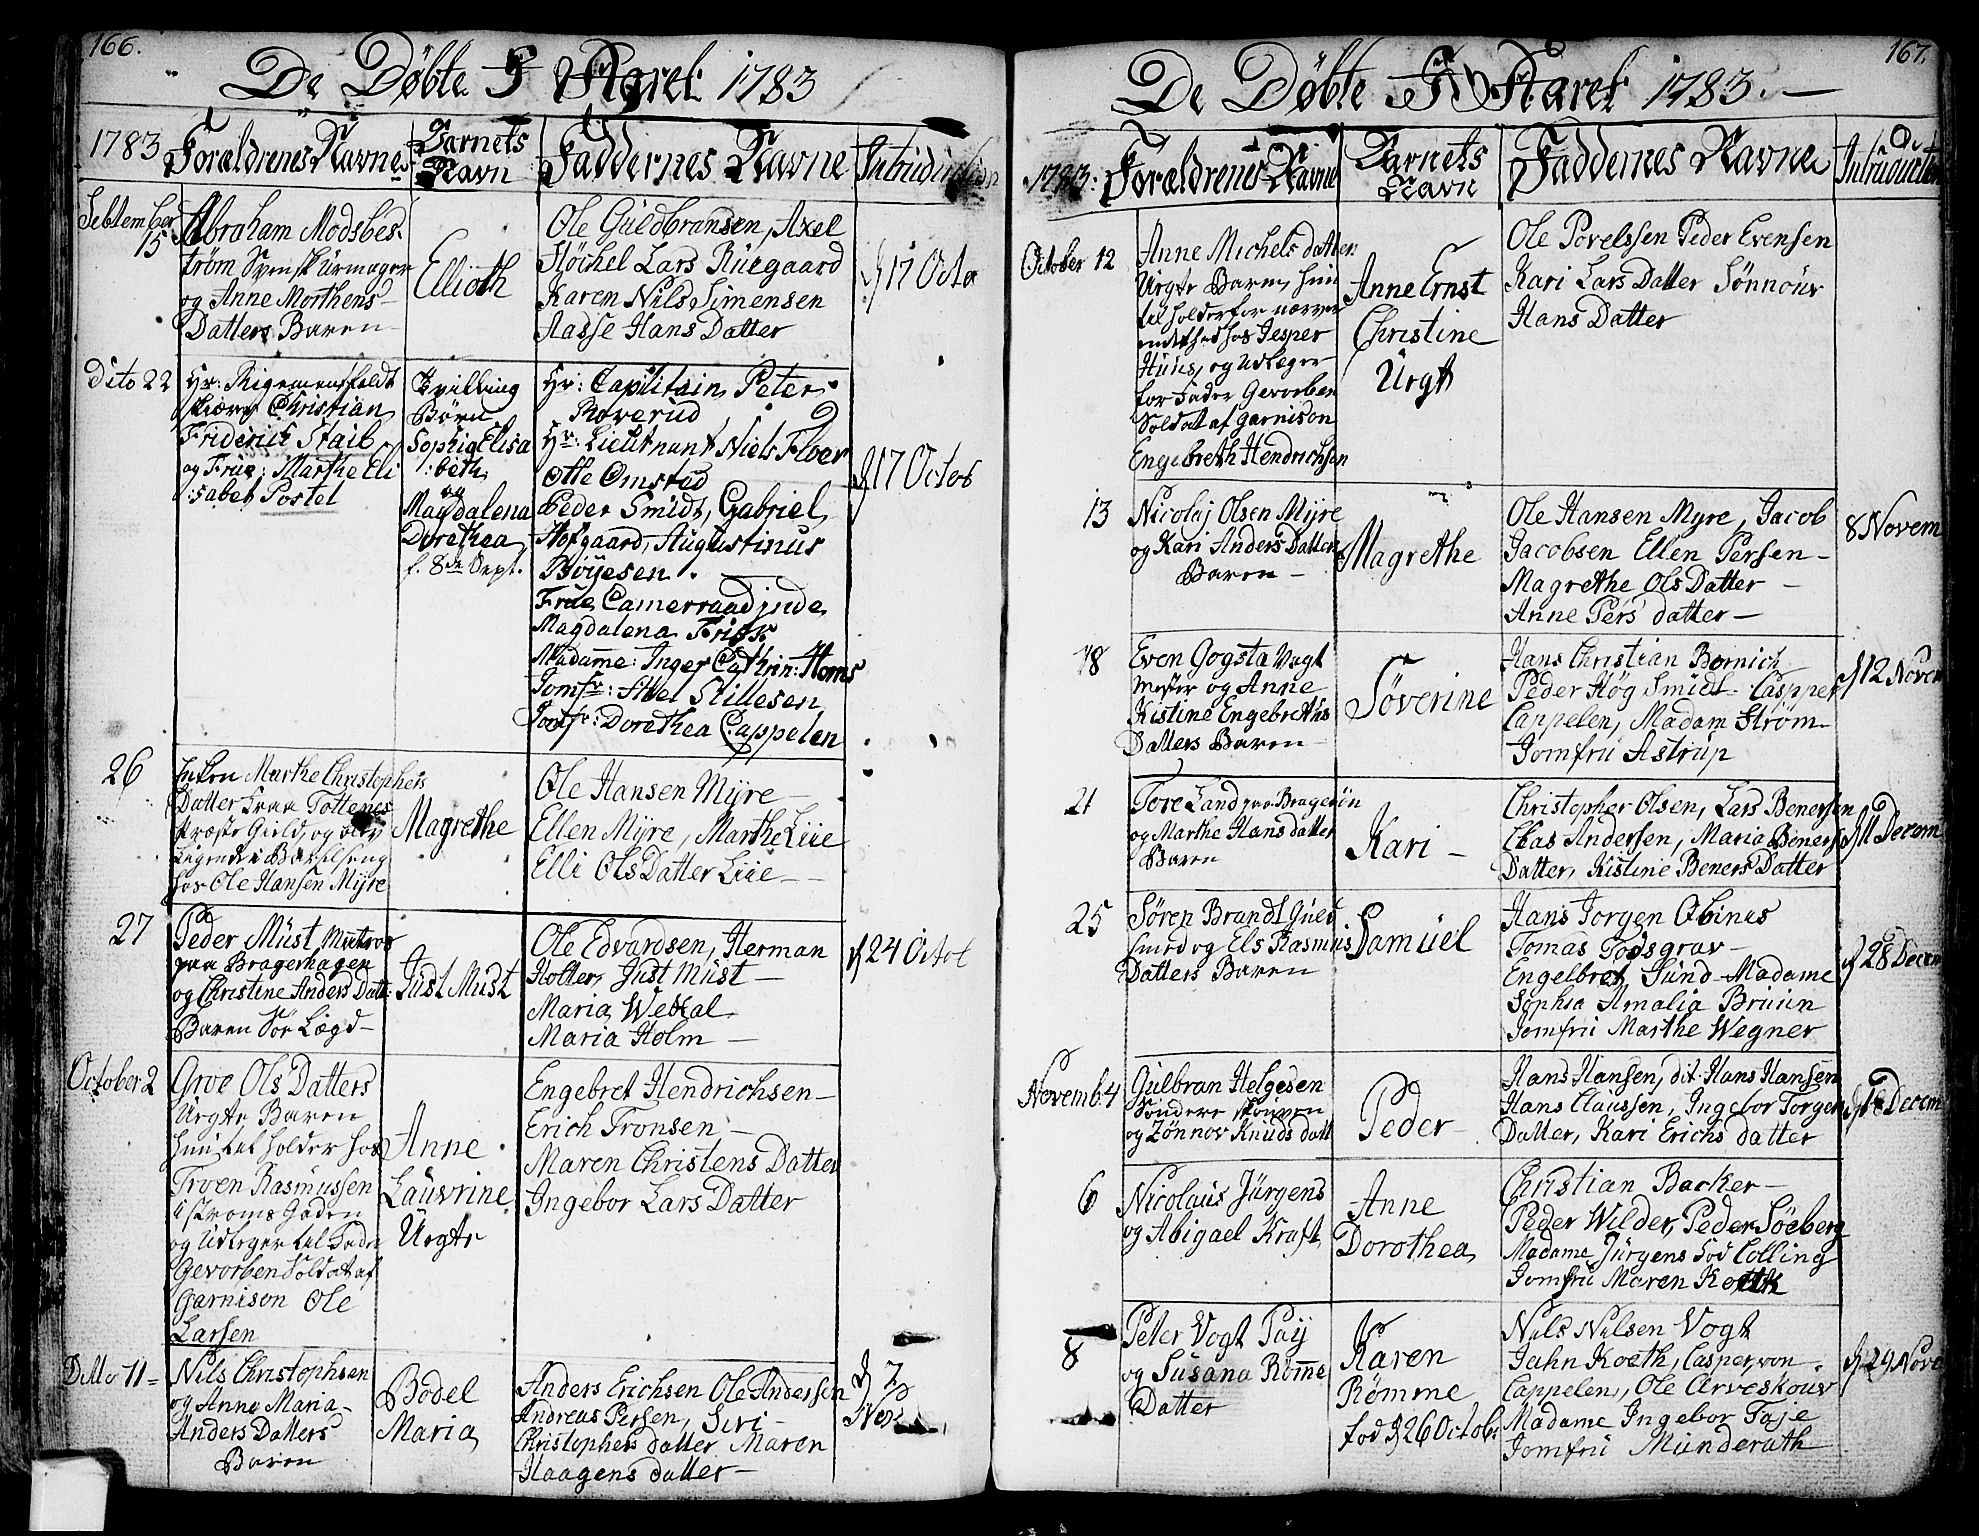 166.
De Døbte I Aaret 1783
1783 Forældrenes Navne
Barnets Navn
Faddernes Navne
Introduction
Sebtember 15
Abraham Modsbes-
trøm Svensk Urmager
og Anne Morthens
Datters Baren
Ellioth
Ole Guldbransen, Axel
Støchel Lars Ruegaard
Karen Nils Simensen
Aasse Hans Datter
d 17 Octo
Dito 22
Hr: Rigemensfeldt
skiærer Christian
Friderich Staib
og Frue: Marthe Eli
:sabet Postel
Tvilling
Børn
Sophia Elisa
:beth
og
Magdalena
Dorethea
f. 8de Sept.
Hr: Capitain Peter
Roverud
Hr: Lieutnant Niels Floer
Otte Omsted
Peder Smidt, Gabriel
Hofgaard, Augustinus
Bøyesen.
Frue Camerraadinde
Magdalena Frisk
Madame: Inger Cathrin: Homs
Jomfr: Stillesen
Jomfr: Dorethea Cappelen
d 17 Octob
26
Enken Marthe Christophers
Datter fraa Tottenes
Præste Gield, og
Ligende i Barselseng
hos Ole Hansen Myre
Magrethe
Ole Hansen Myre
Ellen Myre, Marthe Liie
Elli Ols Datter Liie
27
Peder Müst Matros
paa Bragerhagen
og Christine Anders Datt:
Baren Sør Lægd
Just Must
Ole Edvardsen, Herman
Holter, Just Müst
Maria Wettal
Maria Holm
d 24 Octob
October 2
Groe Ols Datters
Urgte Baren
hun tel holder hos
Troen Rasmussen
i strøms Gaden
og Udleger tel Fader
Gevorben Soldat af
Garnison Ole
Larsen
Anne
Lauvrine
Urgte
Engebret Hendrichsen
Erich Tronsen
Maren Christens Datter
Ingebor Lars Datter
Ditto 11
Nils Christophsen
og Anne Maria
Anders Datters
Baren
Bodel
Maria
Anders Erichsen Ole Andersen
Andreas Persen, Siri
Christophers datter Maren
Haagens datter
d 7
Nov
167.
De Døbte I Aaret 1783.
1783: Forældrenes Navne
Barnets Navn
Faddernes Navne
Introduction
October 12
Anne Michels datter
Urgte Baren, hun
tel holder for nærvær
endethed hos Jesper
Huus, og Udlæger
for Fader Gevorben
Soldat af Garnison
Engebreth Hendrichsen
Anne Ernst
Christine
Urgt
Ole Povelssen Peder Evensen
Kari Lars Datter Sønnøuv
Hans Datter
13
Nicolaj Olsen Myre
og Kari Anders Datters
Baren
Magrethe
Ole Hansen Myre, Jacob
Jacobsen Ellen Persen
Magrethe Ols Datter
Anne Pers datter
8 Novem
18
Even Gogsta Vagt
mester og Anne
Kistine Engebreths
Datters Baren
Søverine
Hans Christian Bornich
Peder Høg Smidt Casper
Cappelen, Madam Strøm
Jomfru Astrup
d 12 Novem
21
Tore Land paa Bragerøn
og Marthe Hans datter
Baren
Kari
Christopher Olsen, Lars Benersen
Claas Andersen, Maria Beners
Datter, Kistine Beners Datter
d 11 Decem
25
Søren Brandt Gued
smed og Els Rasmus
Datters Baren
Samüel
Hans Jorgen Obinus
Tomas Todsgrav
Engelbret Sünd Madame
Sophia Amalia Bruun
Jomfru Marthe Wegner
d 28 Decem
Novemb: 4
Gulbran Helgesen
Søndere skouven
og Zønnov Knuds datt
Peder
Hans Hansen, dit. Hans Hansen
Hans Claussen, Ingebor Torgers
Datter, Kari Erichs datter
Decem
6
Nicolaus Jürgens
og Abigael Kraft
Anne
Dorothea
Christian Backer
Peder Wilder, Peder Søeberg
Madame Jürgens fød Colling
Jomfru Maren Koeth
8
Peter Vogt Tay
og Susana Rømme
Datter
Karen
Römme
fød d 26 Octob:
Niels Nielsen Vogt
Jahn Koeth, Casper von
Cappelen, Ole Arveskouv
Madame Ingebor Taje
Jomfru Munderath
d 29 Nove